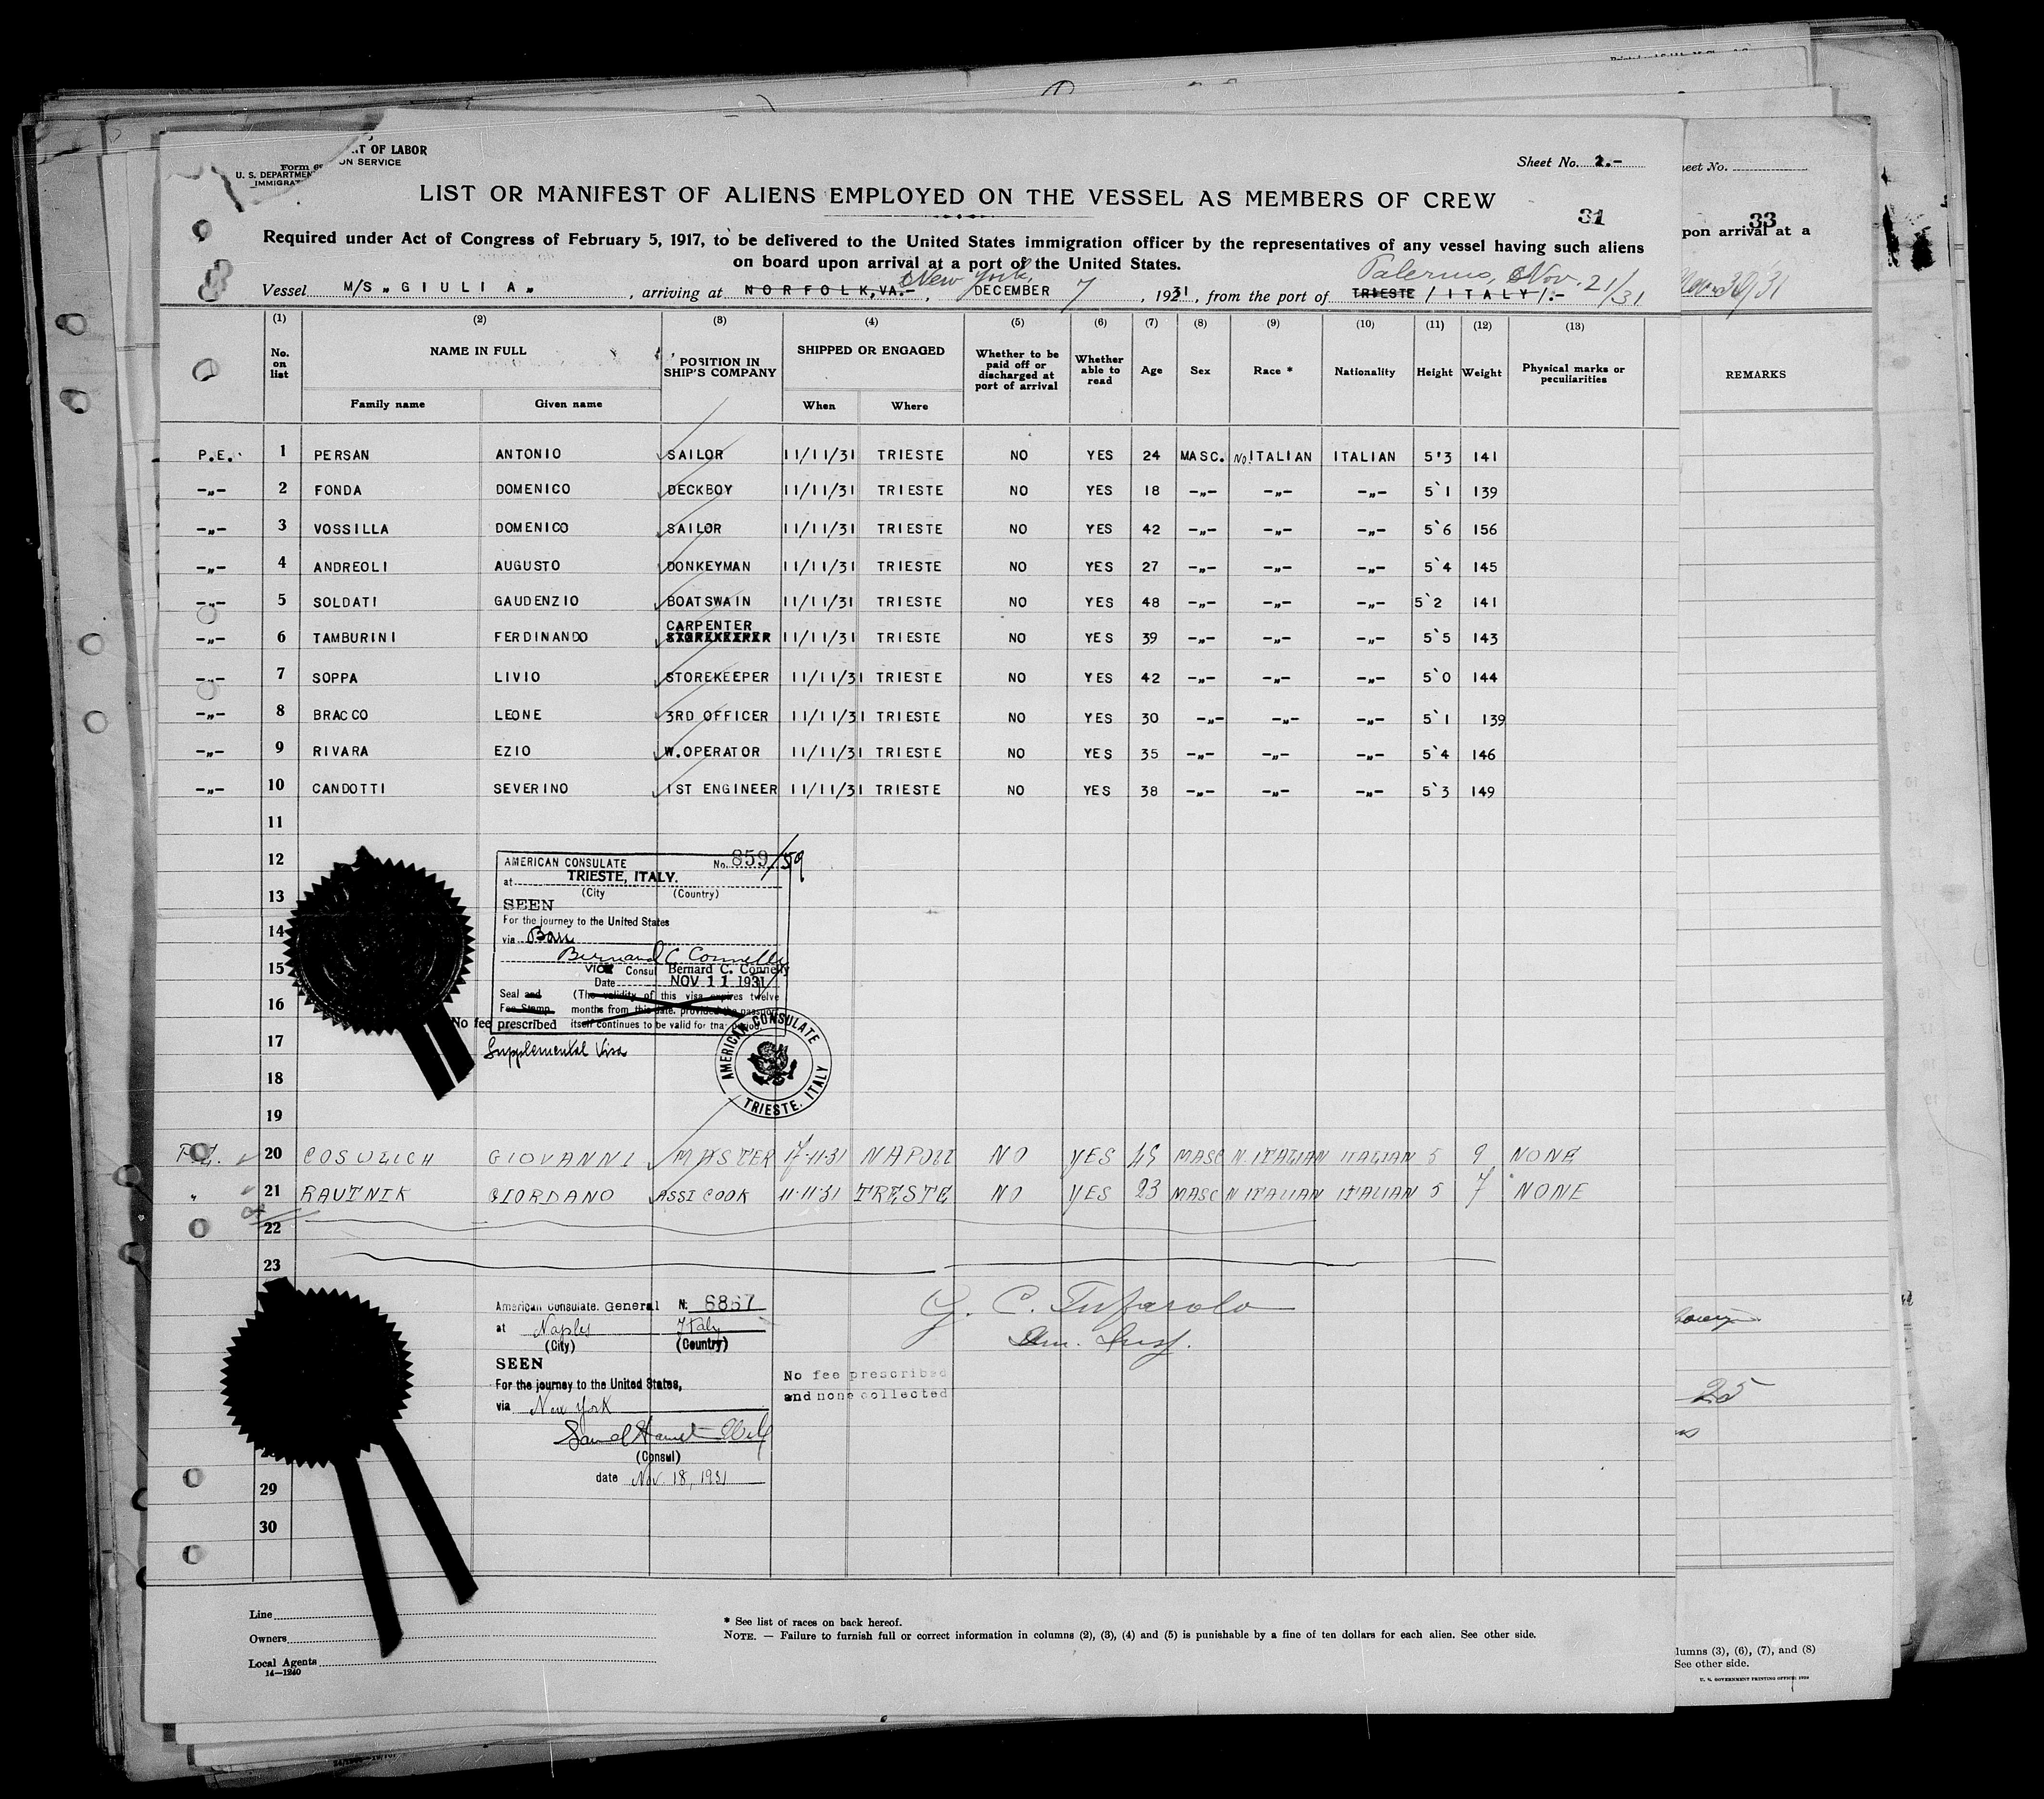 Form 68
U. S. DEPARTMENT OF LABOR
IMMIGRATION SERVICE
Sheet No. 2.-
LIST OR MANIFEST OF ALIENS EMPLOYED ON THE VESSEL AS MEMBERS OF CREW
31
Required under Act of Congress of February 5, 1917, to be delivered to the United States immigration officer by the representatives of any vessel having such aliens
on board upon arrival at a port of the United States.
New York Palermo, Nov. 21/31
Vessel M/S „GIULIA„ , arriving at NORFOLK,VA.- , DECEMBER 7 , 1931 , from the port of TRIESTE /ITALY/.-
(1) (2) (3) (4) (5) (6) (7) (8) (9) (10) (11) (12) (13)
No. on list NAME IN FULL POSITION IN SHIP'S COMPANY SHIPPED OR ENGAGED Whether to be paid off or discharged at port of arrival Whether able to read Age Sex Race * Nationality Height Weight Physical marks or peculiarities
Family name Given name When Where
P.E. 1 PERSAN ANTONIO SAILOR 11/11/31 TRIESTE NO YES 24 MASC. No!ITALIAN ITALIAN 5'3 141
-„- 2 FONDA DOMENICO DECKBOY 11/11/31 TRIESTE NO YES 18 -„- -„- -„- 5'1 139
-„- 3 VOSSILLA DOMENICO SAILOR 11/11/31 TRIESTE NO YES 42 -„- -„- -„- 5'6 156
-„- 4 ANDREOLI AUGUSTO DONKEYMAN 11/11/31 TRIESTE NO YES 27 -„- -„- -„- 5'4 145
-„- 5 SOLDATI GAUDENZIO BOATSWAIN 11/11/31 TRIESTE NO YES 48 -„- -„- -„- 5'2 141
CARPENTER
-„- 6 TAMBURINI FERDINANDO STOREKEEPER 11/11/31 TRIESTE NO YES 39 -„- -„- -„- 5'5 143
-„- 7 SOPPA LIVIO STOREKEEPER 11/11/31 TRIESTE NO YES 42 -„- -„- -„- 5'0 144
-„- 8 BRACCO LEONE 3RD OFFICER 11/11/31 TRIESTE NO YES 30 -„- -„- -„- 5'1 139
-„- 9 RIVARA EZIO W.OPERATOR 11/11/31 TRIESTE NO YES 35 -„- -„- -„- 5'4 146
-„- 10 CANDOTTI SEVERINO 1ST ENGINEER 11/11/31 TRIESTE NO YES 38 -„- -„- -„- 5'3 149
11
12
13
14
15
16
17
18
19
AMERICAN CONSULATE No. 859/59
at TRIESTE, ITALY.
(City (Country)
SEEN
For the journey to the United States
via Bari
Bernard C Connelly
VICE Consul Bernard C. Connelly
Date NOV 11 1931
Seal and (The validity of this visa expires twelve
Fee Stamp months from this date, provided the passport
No fee prescribed itself continues to be valid for that period
Supplemental Visa
AMERICAN CONSULATE
TRIESTE, ITALY
P.E. 20 COSULICH GIOVANNI MASTER 7-11-31 NAPOLI NO YES 45 MASC N.ITALIAN ITALIAN 5 9 NONE
„ 21 RAUTNIK GIORDANO ASSI COOK 11-11-31 TRESTE NO YES 23 MASC N ITALIAN ITALIAN 5 7 NONE
22
23
American Consulate. General N: 6867
at Naples Italy
(City) (Country)
SEEN
For the journey to the United States,
via New York
(Consul)
date Nov. 18, 1931
No fee prescribed
and none collected
G. C. Tufarolo
Imm. Insp.
29
30
Line
Owners
Local Agents
14-1240
* See list of races on back hereof.
NOTE. — Failure to furnish full or correct information in columns (2), (3), (4) and (5) is punishable by a fine of ten dollars for each alien. See other side.
Sheet No.
33
upon arrival at a
REMARKS
25
columns (3), (6), (7), and (8)
See other side.
U. S. GOVERNMENT PRINTING OFFICE